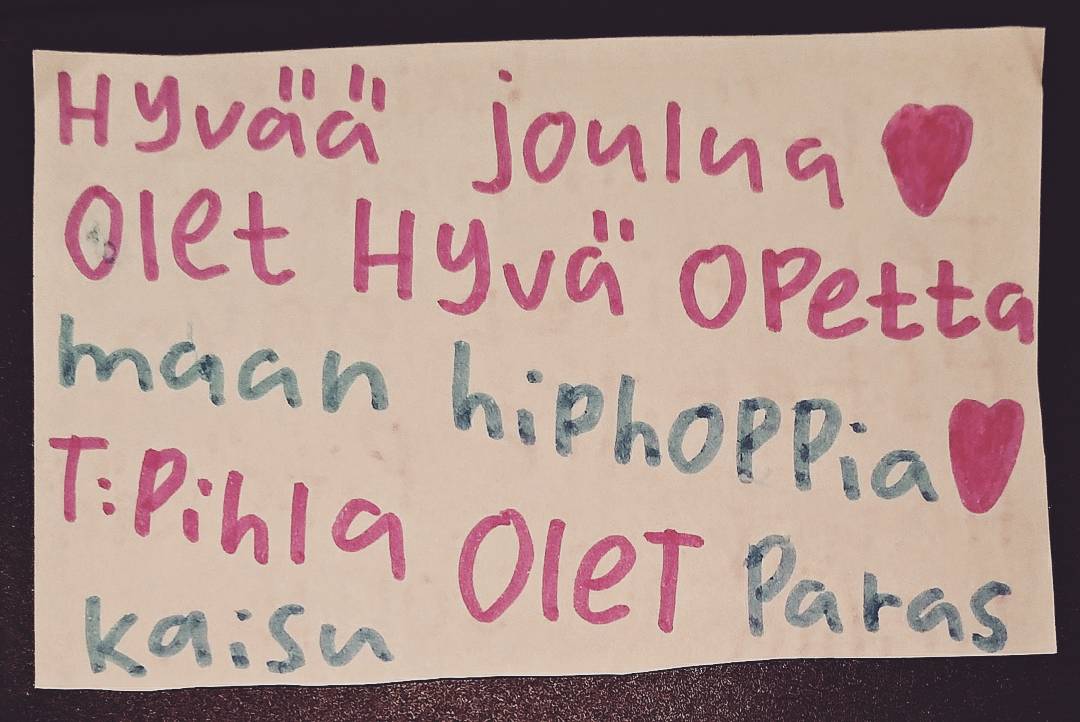 Hyvää joulua
Olet Hyvä Opetta
maan hiphoppia
T:Pihla Olet Paras
kaisu